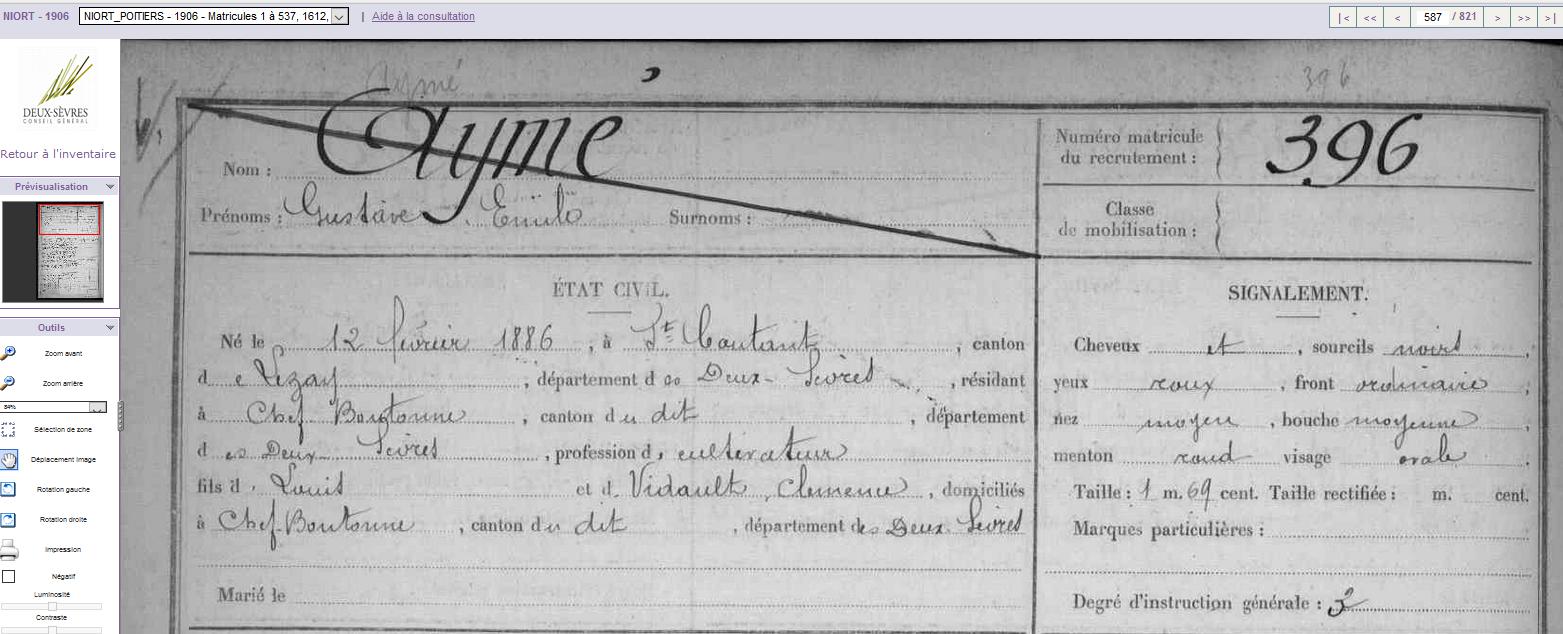 NIORT - 1906 NIORT_POITIERS - 1906 - Matricules 1 à 537, 1612, | Aide à la consultation |< << < 587 / 821 > >> >|
DEUX-SÈVRES
CONSEIL GÉNÉRAL
Retour à l'inventaire
Prévisualisation
Outils
Zoom avant
Zoom arrière
84%
Sélection de zone
Déplacement image
Rotation gauche
Rotation droite
Impression
Négatif
Luminosité
Contraste
Aymé
396
Nom : Aymé
Prénoms : Gustave Emile Surnoms :
Numéro matricule
du recrutement : 396
Classe
de mobilisation :
ÉTAT CIVIL.
Né le 12 février 1886 , à St Coutant , canton
d e Lezay , département d es Deux-Sèvres , résidant
à Chef Boutonne , canton d u dit , département
d es Deux Sèvres , profession d cultivateur
fils d Louis et d Vidault, Clemence , domiciliés
à Chef-Boutonne , canton du dit , département des Deux Sèvres
Marié le
SIGNALEMENT.
Cheveux et , sourcils noirs ,
yeux roux , front ordinaire ;
nez moyen , bouche moyenne ,
menton rond visage ovale .
Taille : 1 m. 69 cent. Taille rectifiée : m. cent.
Marques particulières :
Degré d'instruction générale : 3